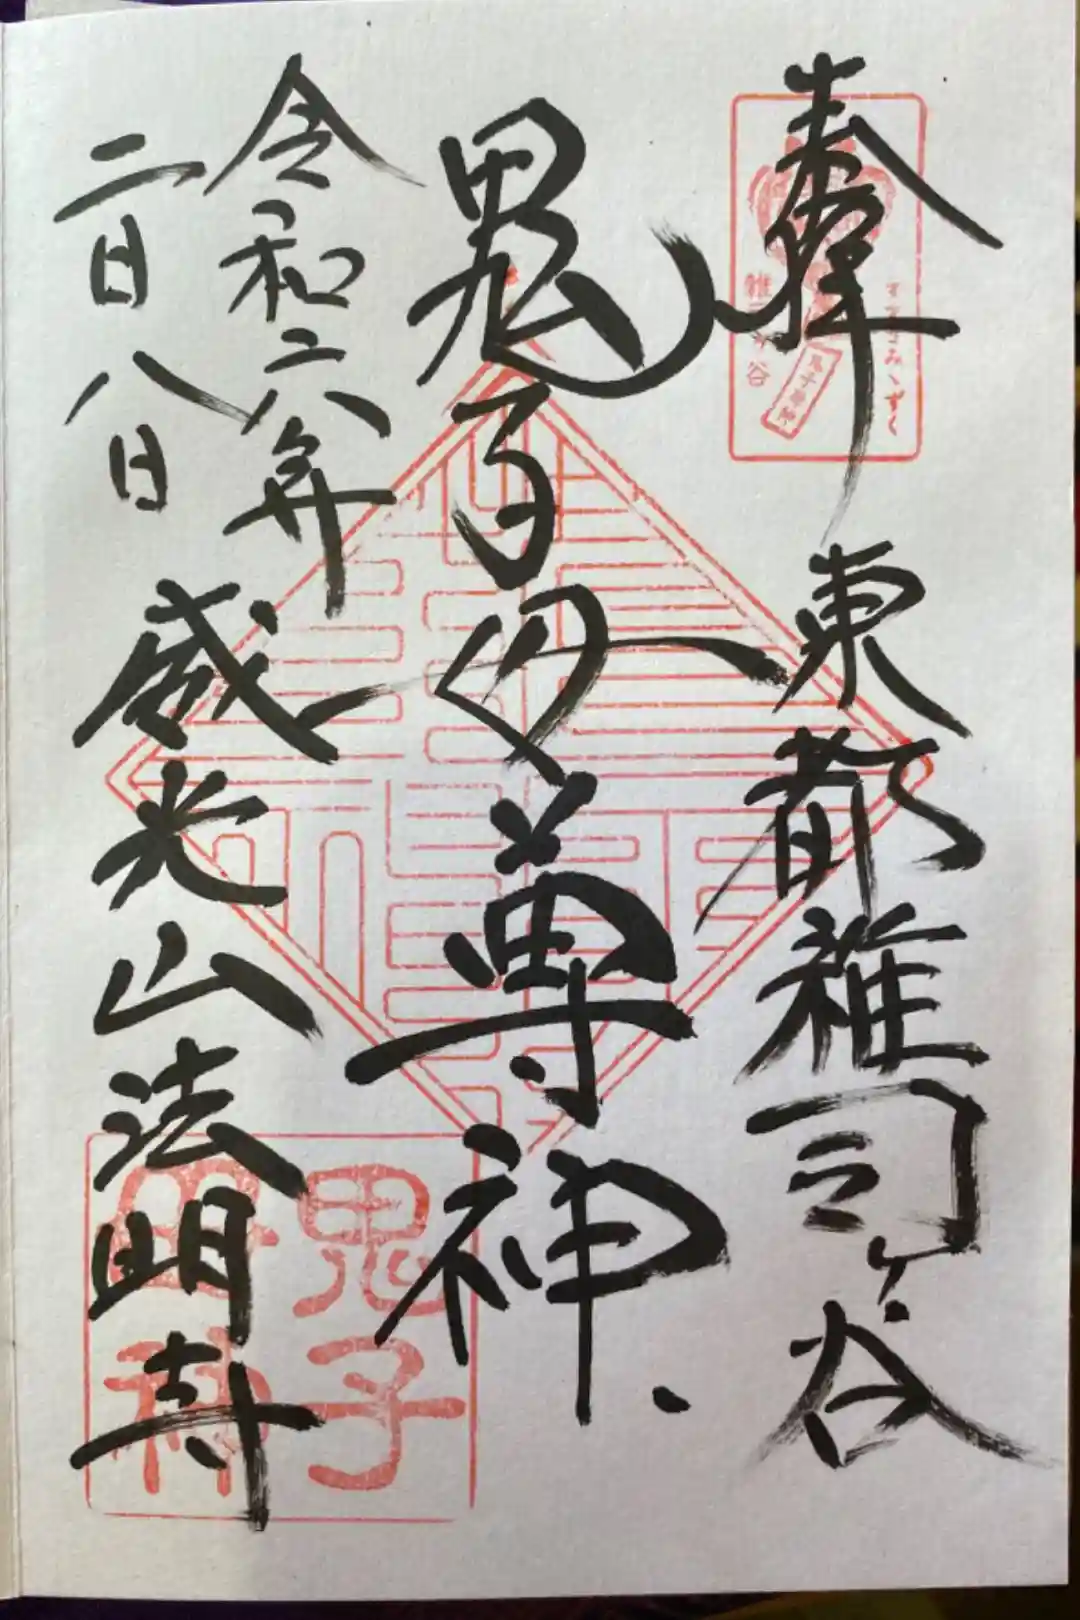 奉拝
東都雑司ヶ谷
鬼子母尊神
令和六年
二月八日
威光山法明寺
すすきみゝずく
雑司ヶ谷
鬼子母神
鬼子
母神